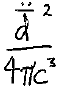 d̈²
4πc³